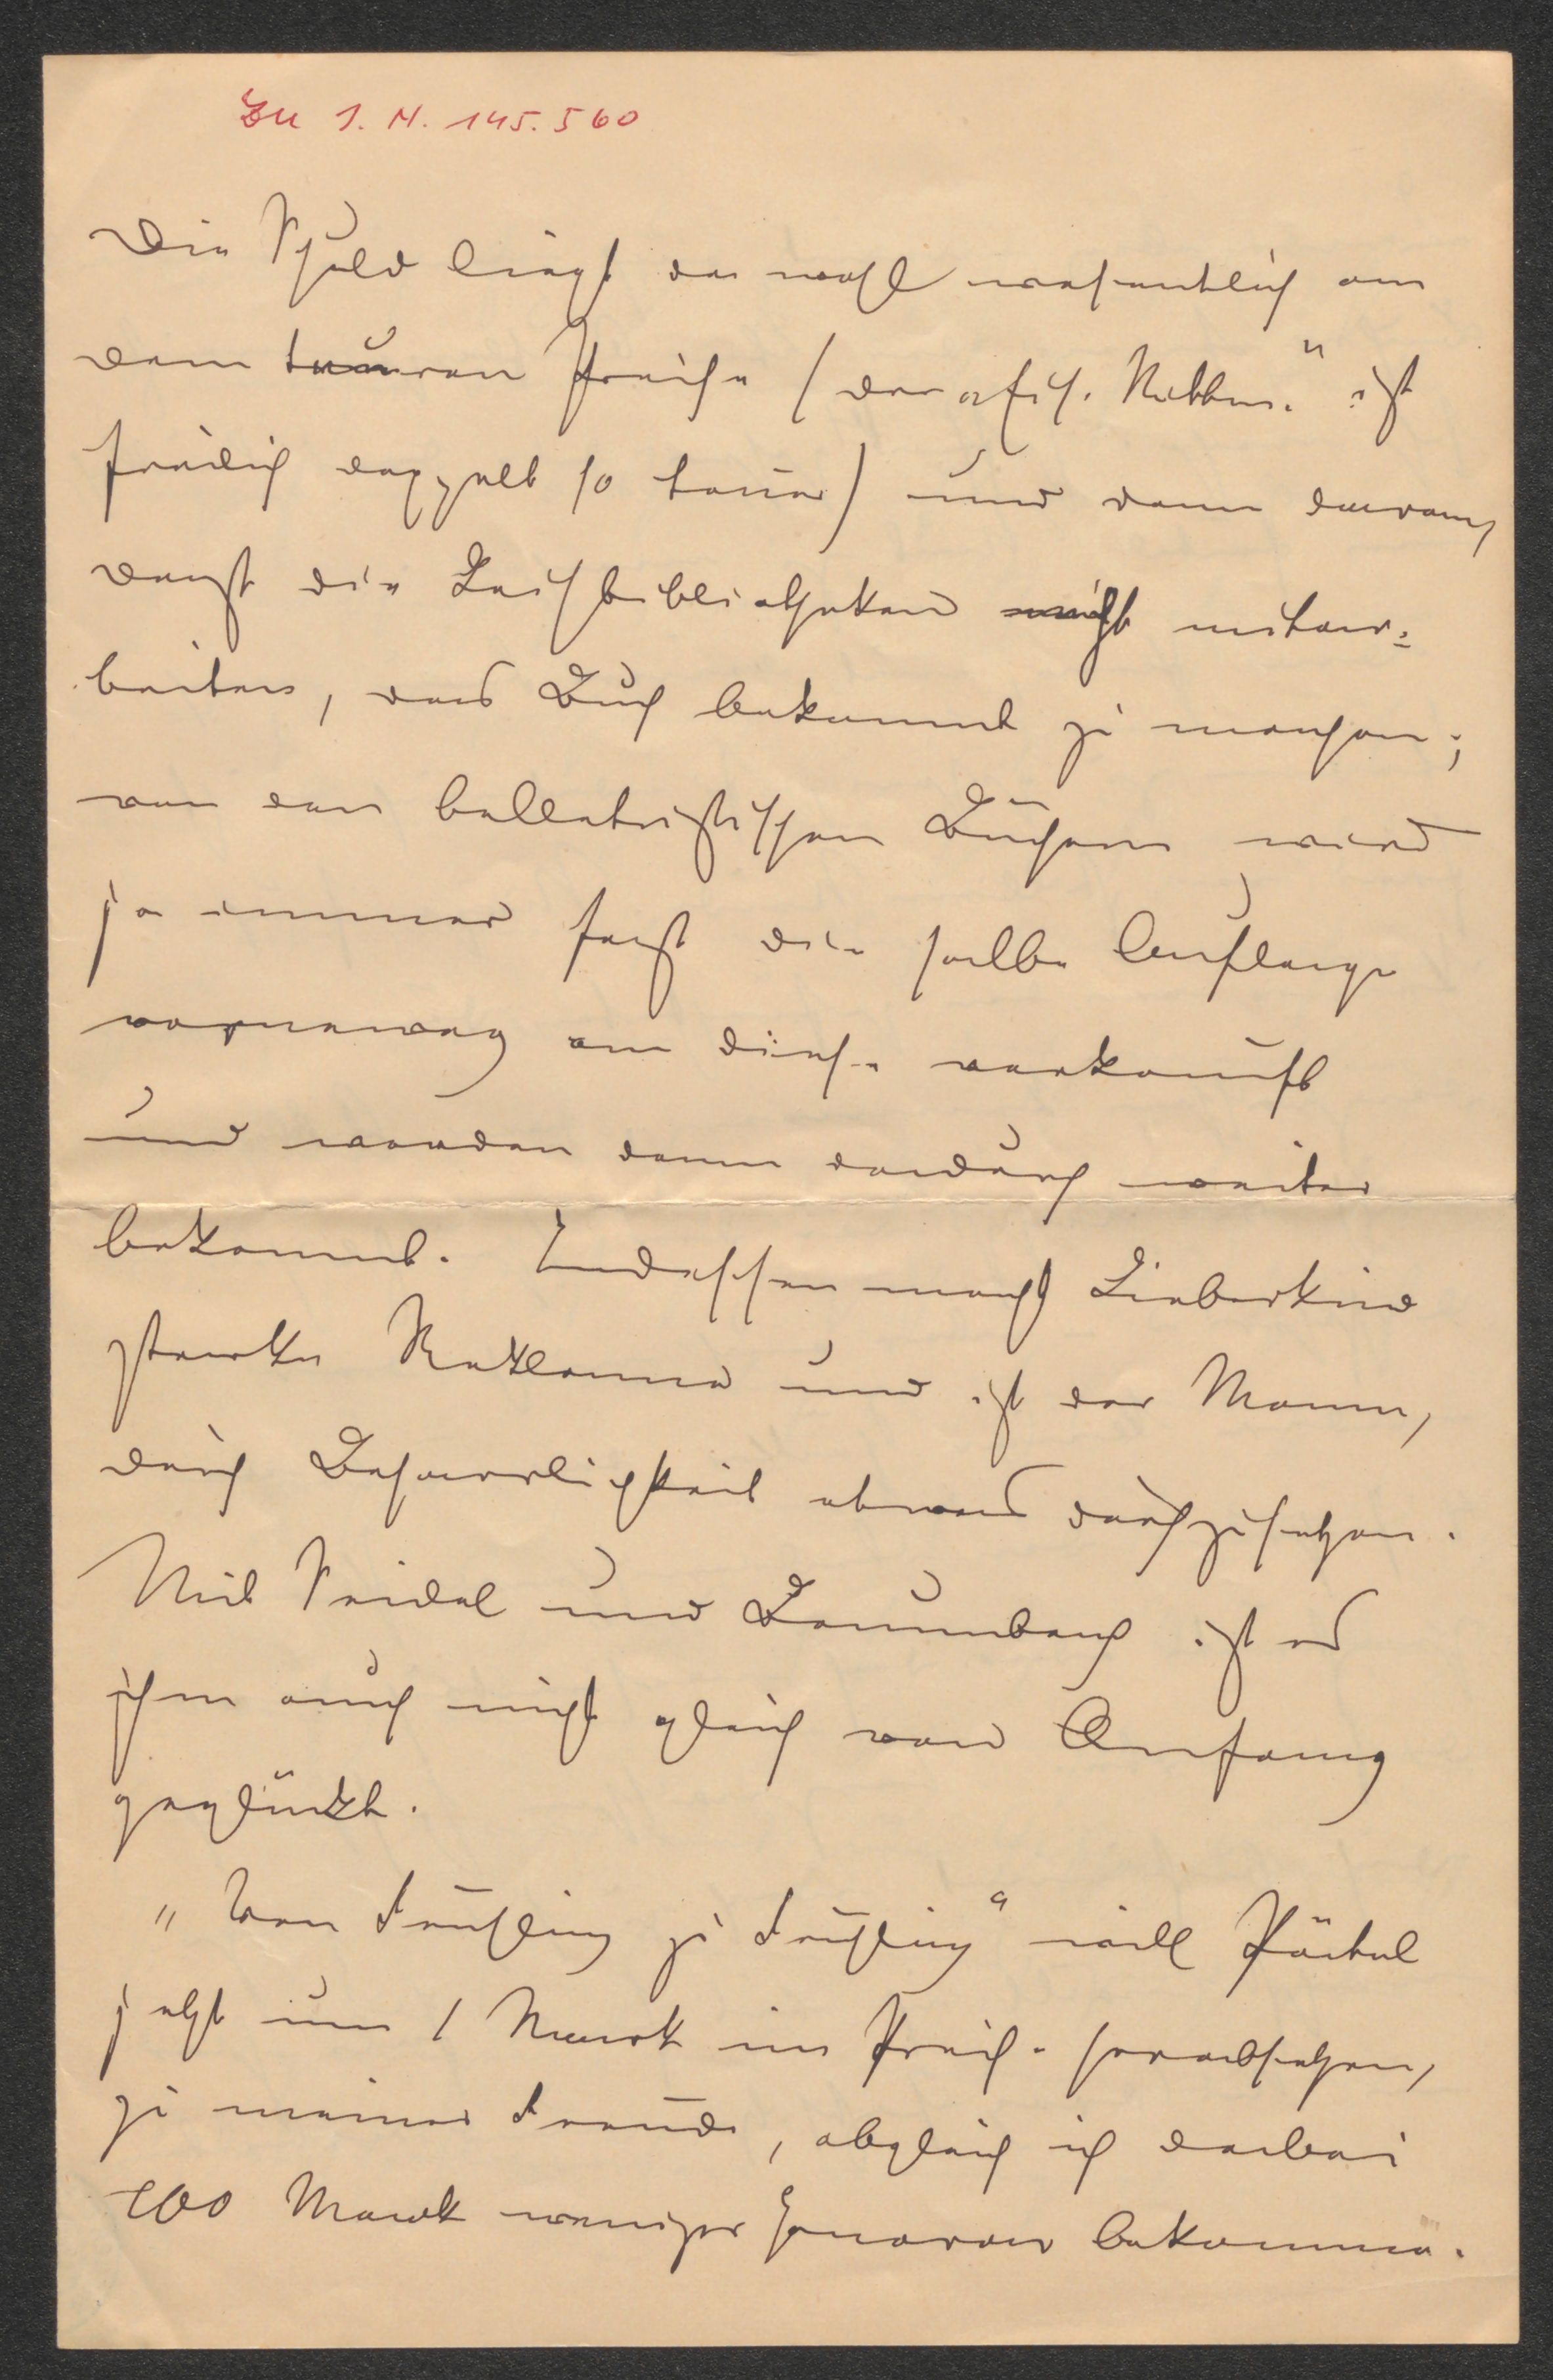 Zu I. N. 145.560
Die Schuld liegt da wohl wesentlich am
dem teuren Preise (der
freilich doppelt so teuer) und dann daran,
daß die Leihbibliotheken nicht mitar-
beiten, das Buch bekannt zu machen;
von den belletristischen Büchern wird
ja immer fast die halbe Auflage
vorneweg an diese verkauft
und werden dann dadurch weiter
bekannt. Indessen macht Liebeskind
starke Reklame und ist der Mann,
durch Beharrlichkeit etwas durchzusetzen.
Mit Seidel und Baumbach ist es
ihm auch nicht gleich von Anfang
geglückt.
„Von Frühling zu Frühling“ will Pätel
jetzt um 1 Mark im Preise herabsetzen,
zu meiner Freude, obgleich ich dabei
100 Mark weniger Honorar bekomme.